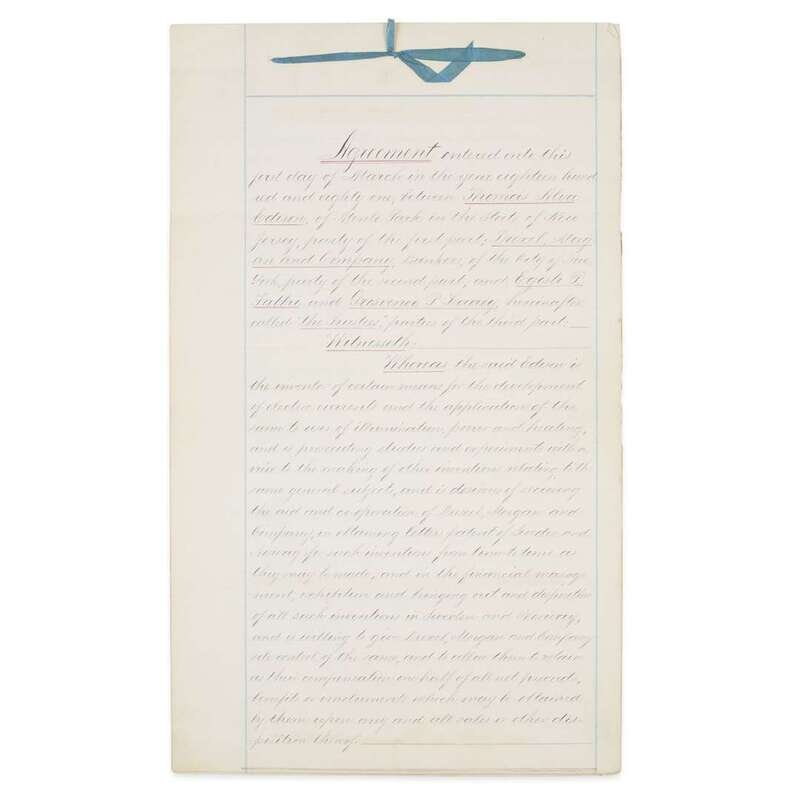 Agreement entered into this
first day of March in the year eighteen hund
red and eighty one, between Thomas Alva
Edison, of Menlo Park in the State of New
Jersey, party of the first part; Drexel, Morg
an and Company, Bankers, of the City of New
York, party of the second part; and Egisto P.
Fabbri and Grosvenor P. Lowrey, hereinafter
called "the Trustees," parties of the third part:
Witnesseth:
Whereas the said Edison is
the inventor of certain means for the development
of electric currents and the application of the
same to uses of illumination, power and heating,
and is prosecuting studies and experiments with a
view to the making of other inventions relating to the
same general subject, and is desirous of securing
the aid and co-operation of Drexel, Morgan and
Company, in obtaining letters patent of Sweden and
Norway for such inventions from time to time as
they may be made, and in the financial manage
ment, exhibition and bringing out and disposition
of all such inventions in Sweden and Norway,
and is willing to give Drexel, Morgan and Company
sole control of the same, and to allow them to retain
as their compensation one half of all net proceeds,
benefits or emoluments which may be obtained
by them upon any and all sales or other dis-
position thereof.